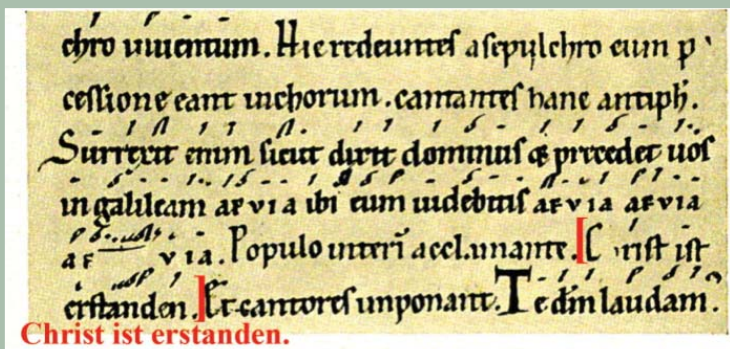 chro uiuentum. Hi e redeuntes a sepulchro cum p
cessione eant in chorum. cantantes hanc antiph.
Surrexit enim sicut dixit dominus & precedet uos
in galileam aevia ibi eum uidebitis aevia aevia
ae via. Populo interi accl.mante. [C rist ist
erstanden.] Et cantores inponant. Te dm laudam.
Christ ist erstanden.